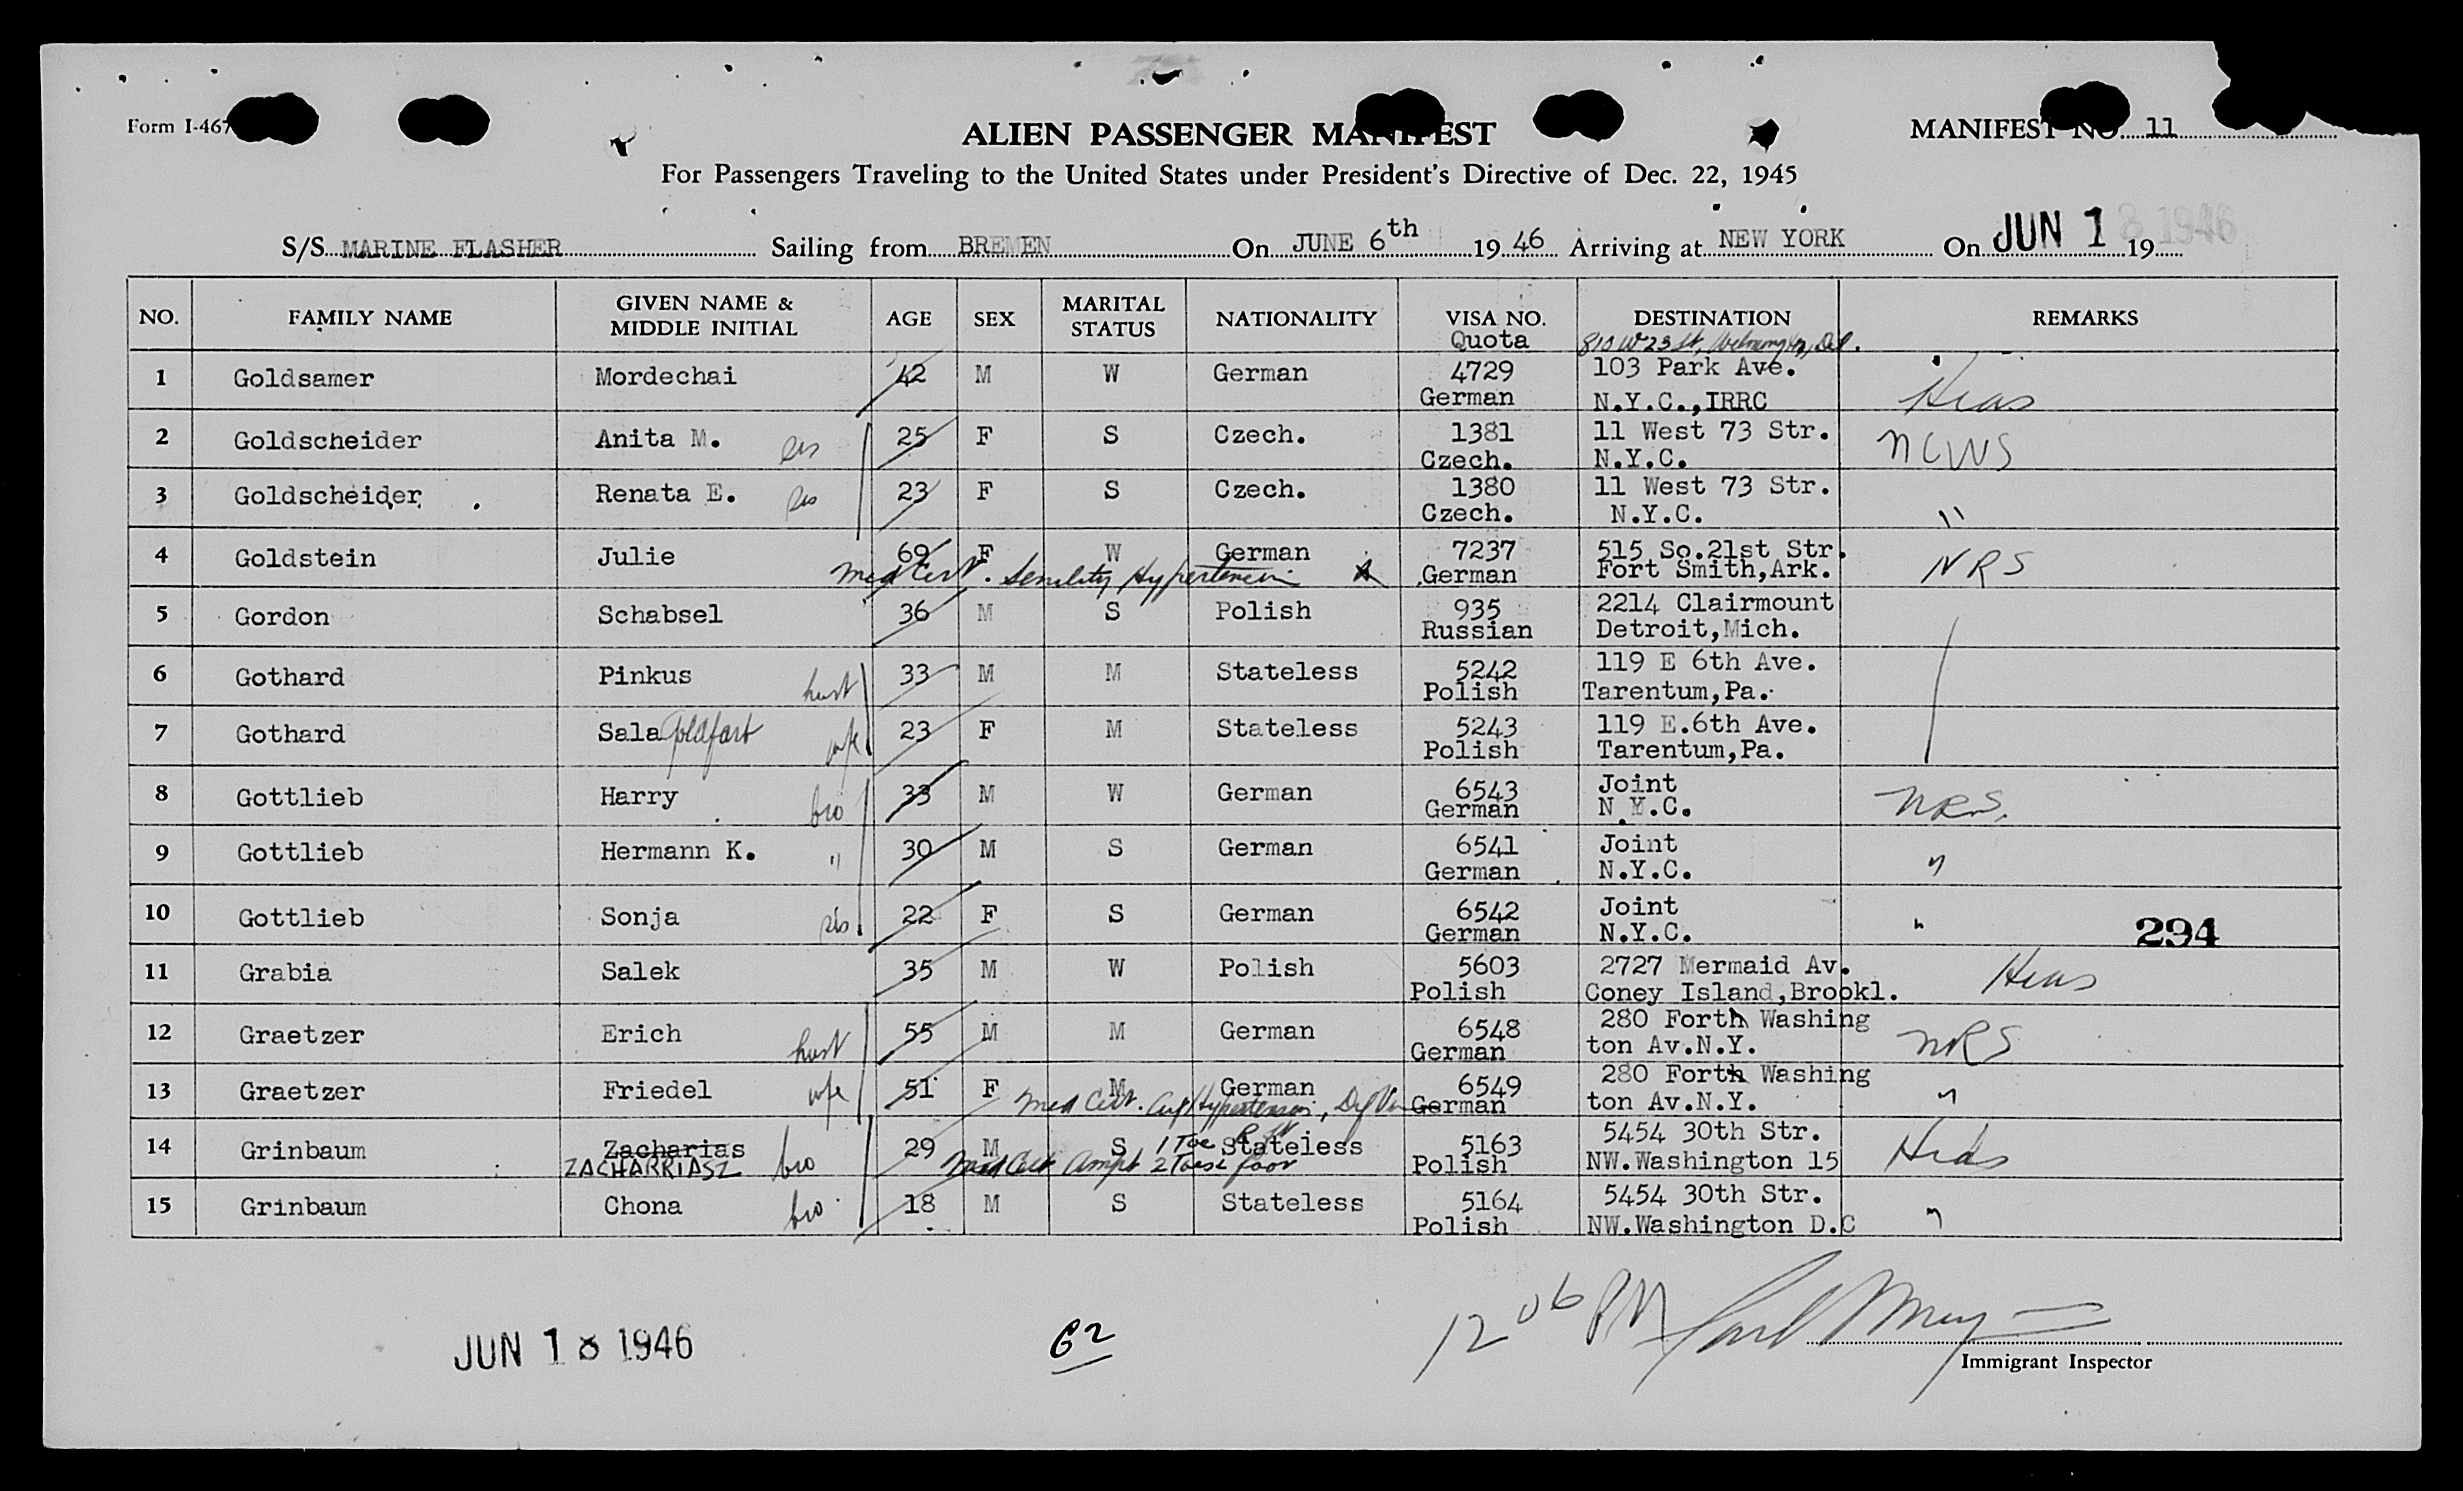 Form I-467
ALIEN PASSENGER MANIFEST
MANIFEST NO. 11
For Passengers Traveling to the United States under President's Directive of Dec. 22, 1945
S/S MARINE FLASHER Sailing from BREMEN On JUNE 6th 19 46 Arriving at NEW YORK On JUN 18 1946 19
NO. FAMILY NAME GIVEN NAME & MIDDLE INITIAL AGE SEX MARITAL STATUS NATIONALITY VISA NO. Quota DESTINATION REMARKS
810 W 23 St, Del.
1 Goldsamer Mordechai 42 M W German 4729 103 Park Ave.
German N.Y.C.,IRRC Hias
2 Goldscheider Anita M. sis 25 F S Czech. 1381 11 West 73 Str. NCWS
Czech. N.Y.C.
3 Goldscheider Renata E. sis 23 F S Czech. 1380 11 West 73 Str.
Czech. N.Y.C. "
4 Goldstein Julie 69 F W German 7237 515 So.21st Str. NRS
Med Cert. Senility Hypertension German Fort Smith,Ark.
5 Gordon Schabsel 36 M S Polish 935 2214 Clairmount
Russian Detroit,Mich.
6 Gothard Pinkus husb 33 M M Stateless 5242 119 E 6th Ave.
Polish Tarentum,Pa.
7 Gothard Sala Goldfarb wife 23 F M Stateless 5243 119 E.6th Ave.
Polish Tarentum,Pa.
8 Gottlieb Harry bro 33 M W German 6543 Joint NRS.
German N.Y.C.
9 Gottlieb Hermann K. " 30 M S German 6541 Joint "
German N.Y.C.
10 Gottlieb Sonja sis 22 F S German 6542 Joint "
German N.Y.C. 294
11 Grabia Salek 35 M W Polish 5603 2727 Mermaid Av. Hias
Polish Coney Island,Brookl.
12 Graetzer Erich husb 55 M M German 6548 280 Forth Washing
German ton Av.N.Y. NRS
13 Graetzer Friedel wife 51 F M German 6549 280 Forth Washing
Med Cert. Hypertension, German ton Av.N.Y. "
14 Grinbaum Zacharias bro 29 M S Stateless 5163 5454 30th Str. Hias
ZACHARRIASZ Med Cert Ampt 1 Toe R 2 Toes L foot Polish NW.Washington 15
15 Grinbaum Chona bro 18 M S Stateless 5164 5454 30th Str. "
Polish NW.Washington D.C
JUN 18 1946 62 12 06 PM
Immigrant Inspector